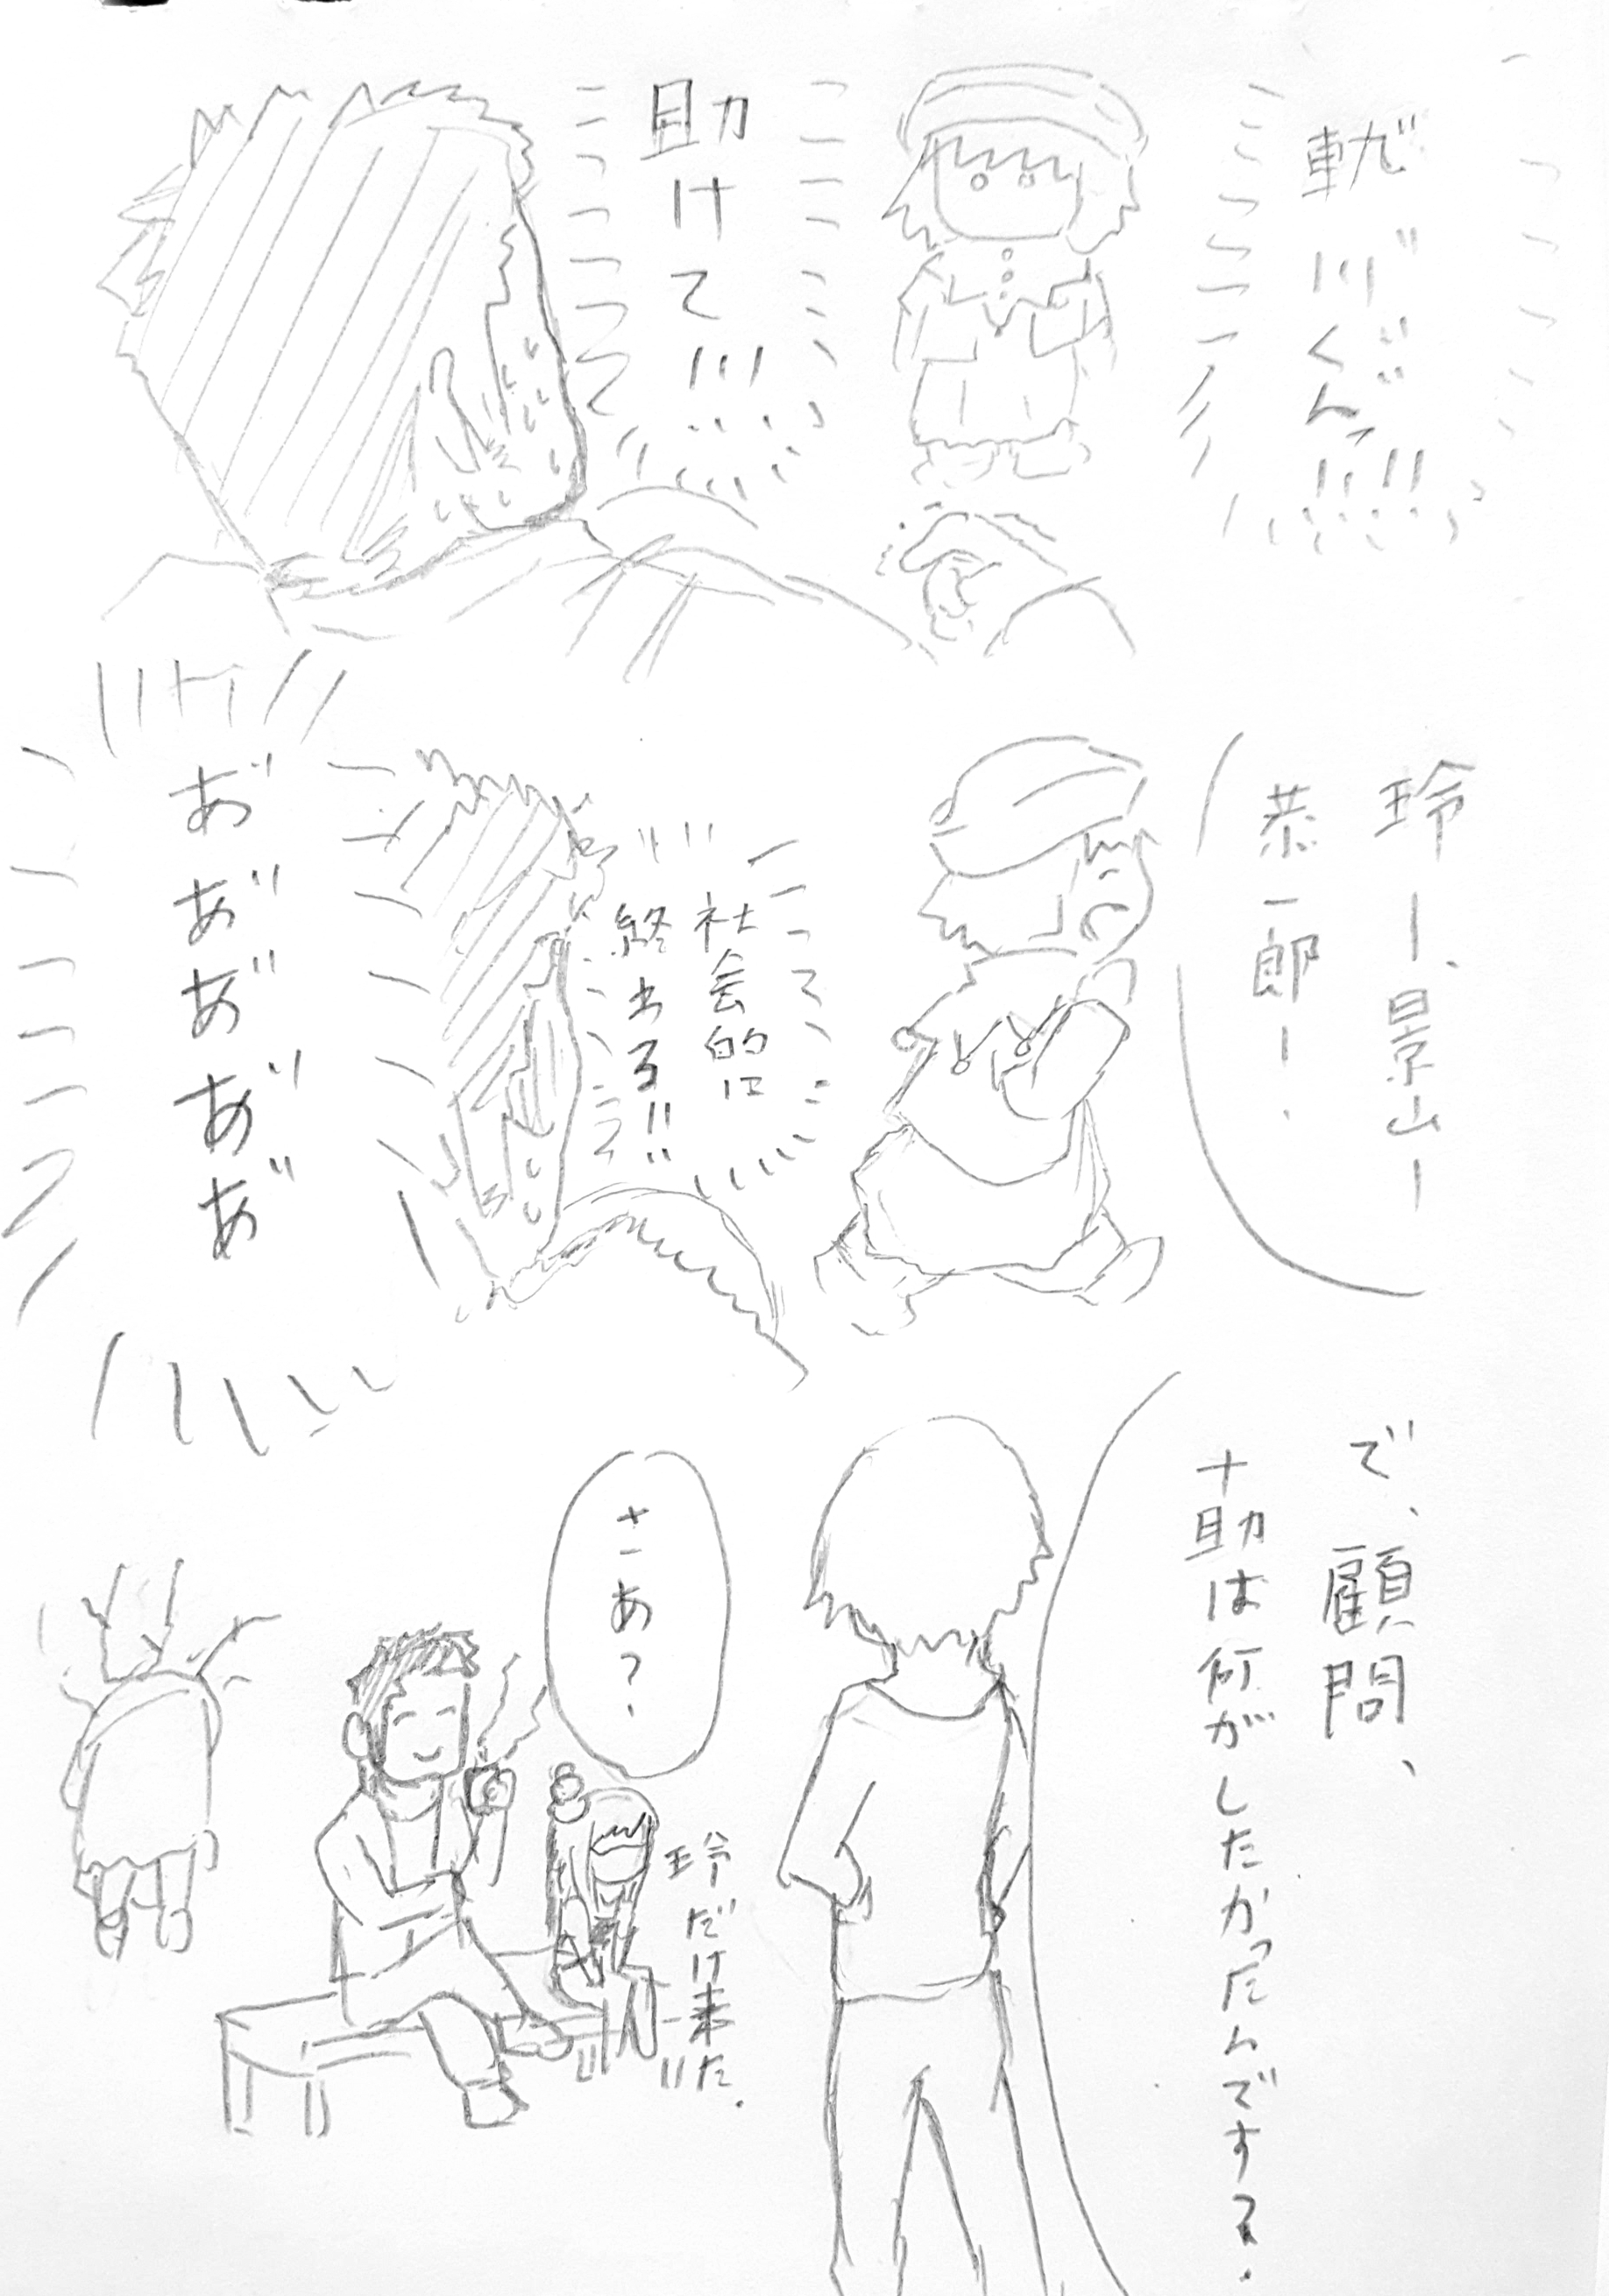 軌゛川゛ぐんっ!!!!
助けて!!!
玲ー、景山ー
恭一郎ー.
社会的に
終わる!!
あ゛あ゛あ゛あ゛あ゛
で、顧問、
十助は何がしたかったんですか.
さあ?
玲だけ来た.